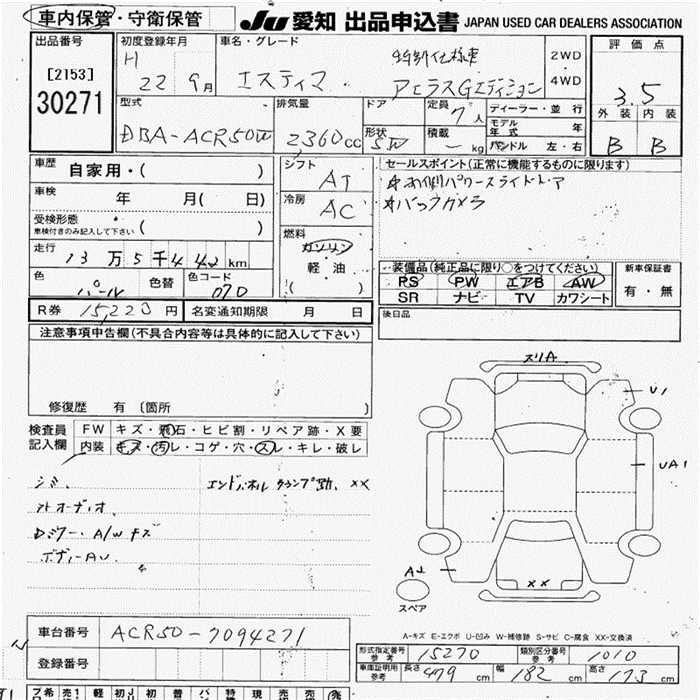 車内保管・守衛保管 JU 愛知 出品申込書 JAPAN USED CAR DEALERS ASSOCIATION
出品番号 初度登録年月 車名・グレード 評価点
[2153] H 22 9月 エスティマ 特別仕様車 2WD
30271 アエラスGエディション 4WD 3.5
型式 排気量 ドア 定員 7人 ディーラー・並行 外装 内装
DBA-ACR50W 2360cc 形状 5W 積載 - kg モデル年式 年 B B
ハンドル 左・右
車歴 自家用・( ) シフト AT セールスポイント(正常に機能するものに限ります)
車検 年 月( 日) 冷房 AC 両側パワースライドドア
受検形態 ( ) バックカメラ
車検付きのみ記入して下さい
燃料 ガソリン
走行 13万5千442km 軽油 装備品(純正品に限り○をつけてください) 新車保証書
色 色替 色コード ( ) PS PW エアB AW 有・無
パール 070 SR ナビ TV カワシート
R券 15,223円 名変通知期限 月 日 後日品
注意事項申告欄(不具合内容等は具体的に記入して下さい)
修復歴 有 〔箇所 〕
検査員 FW キズ・飛石・ヒビ割・リペア跡・X要
記入欄 内装 キズ・汚レ・コゲ・穴・スレ・キレ・破レ
シミ、 エンドパネル XX
外オーディオ
Dミラー・A/Wキズ
ボディーAU
スリA
U1
UA1
XX
スペア
A-キズ E-エクボ U-凹み W-補修跡 S-サビ C-腐食 XX-交換済
車台番号 ACR50-7094271
登録番号
形式指定番号 参考 15270 類別区分番号 参考 1010
車庫証明用 参考 長さ 479cm 幅 182cm 高さ 173cm